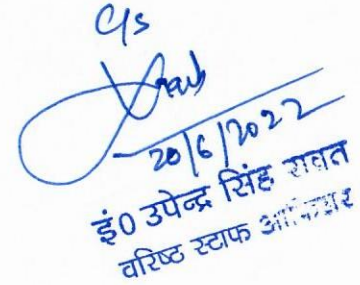 C/s
20/6/2022
इं0 उपेन्द्र सिंह रावत
वरिष्ठ स्टाफ आफिसर